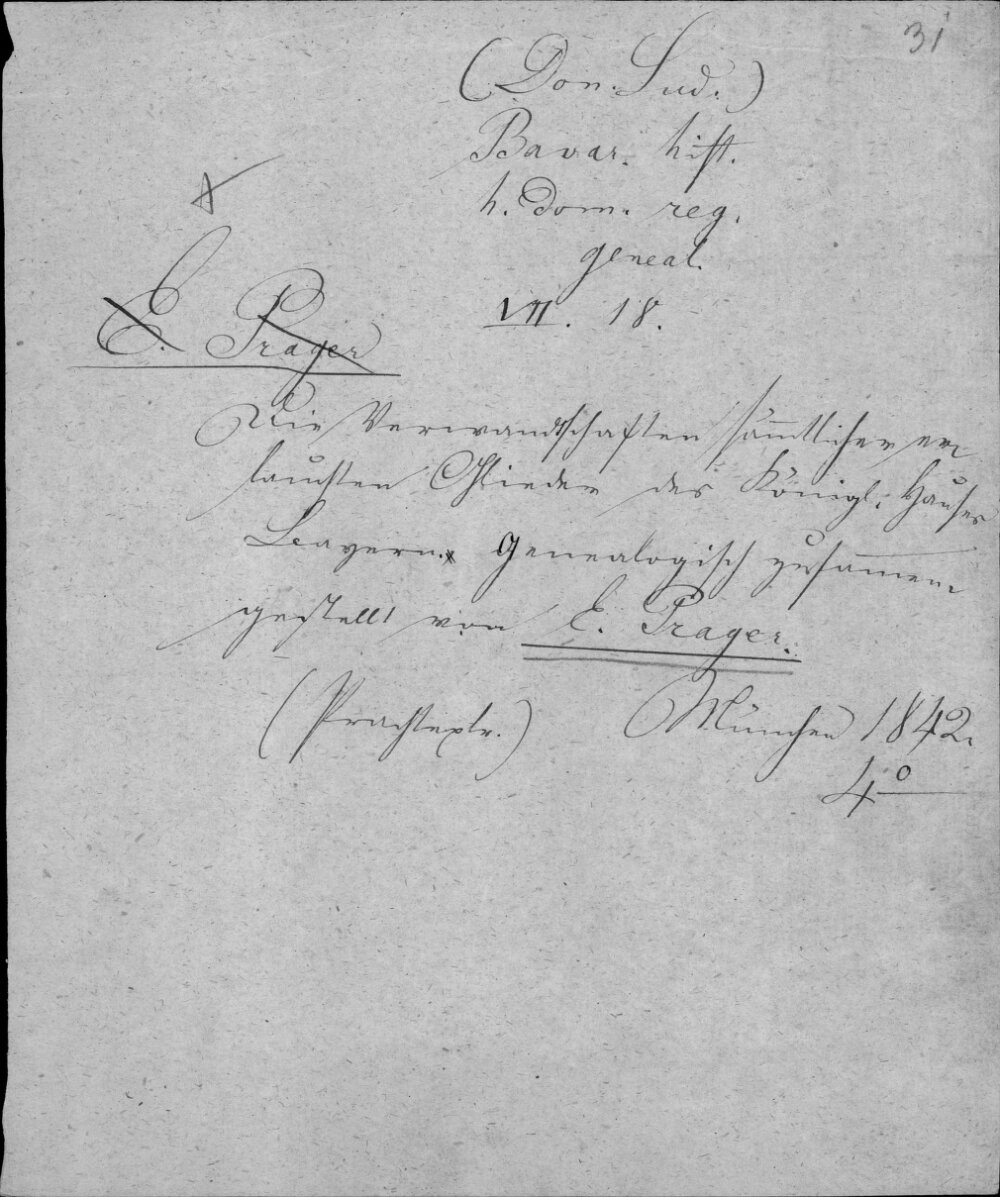 31
(Don. Lud.)
Bavar. hist.
h. Dom. reg.
geneal.
VII. 18.
E. Prager
Die Verwandtschaften sämmtlicher er
lauchten Glieder des Königl: Hauses
Bayern. Genealogisch zusammen
gestellt von E. Prager.
(Prachtexlr.) München 1842.
4º